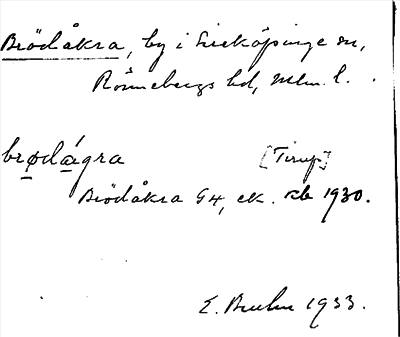 Brödåkra, by i Sireköpinge sn,
Rönnebergs hd, Mlm. l.
brødágra [Tirup]
Brödåkra G4, ek. kb 1930.
E. Bruhn 1933.